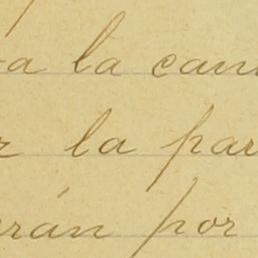 a la can
la par
rán por